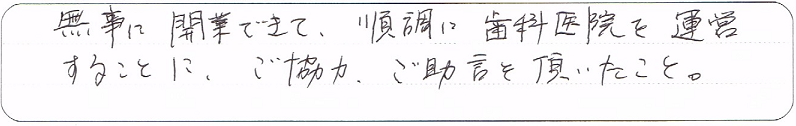 無事に開業できて、順調に歯科医院を運営
することに、ご協力、ご助言を頂いたこと。